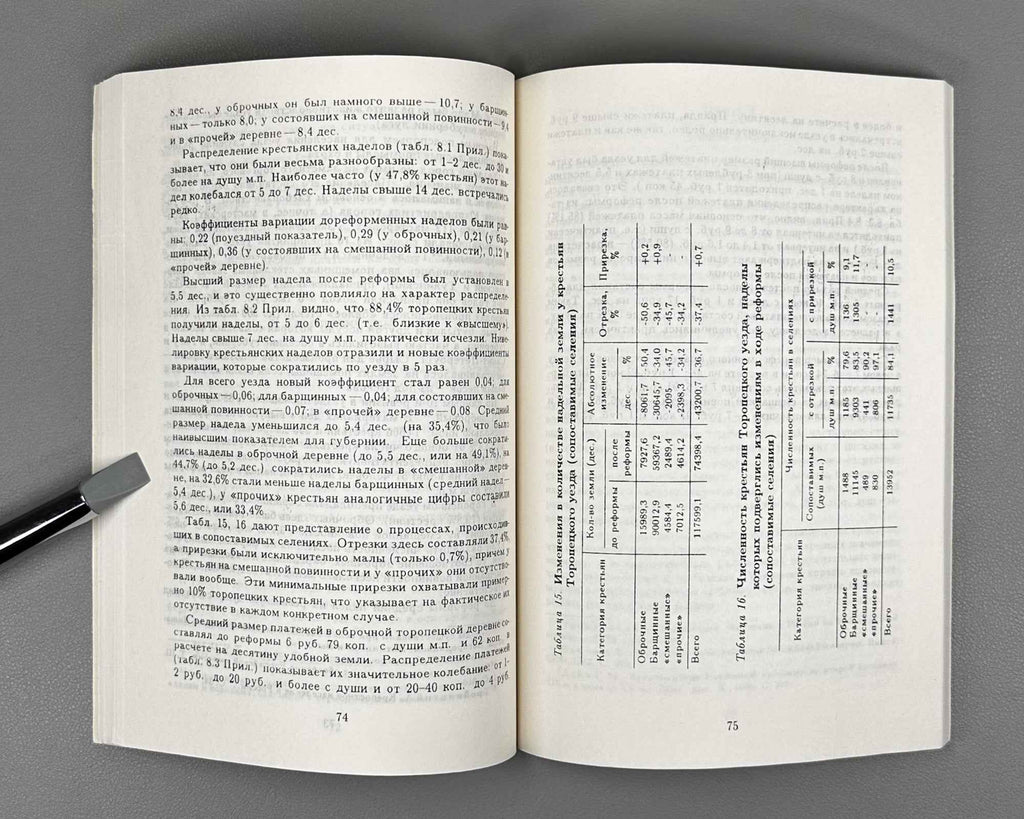 8,4 дес., у оброчных он был намного выше — 10,7; у барщин-
ных — только 8,0; у состоявших на смешанной повинности — 9,4
и в «прочей» деревне — 8,4 дес.
Распределение крестьянских наделов (табл. 8.1 Прил.) пока-
зывает, что они были весьма разнообразны: от 1–2 дес. до 30 и
более на душу м.п. Наиболее часто (у 47,8% крестьян) этот на-
дел колебался от 5 до 7 дес. Наделы свыше 14 дес. встречались
редко.
Коэффициенты вариации дореформенных наделов были рав-
ны: 0,22 (поуездный показатель), 0,29 (у оброчных), 0,21 (у бар-
щинных), 0,36 (у состоявших на смешанной повинности), 0,12 (в
«прочей» деревне).
Высший размер надела после реформы был установлен в
5,5 дес., и это существенно повлияло на характер распределе-
ния. Из табл. 8.2 Прил. видно, что 88,4% торопецких крестьян
получили наделы, от 5 до 6 дес. (т.е. близкие к «высшему»).
Наделы свыше 7 дес. на душу м.п. практически исчезли. Ниве-
лировку крестьянских наделов отразили и новые коэффициенты
вариации, которые сократились по уезду в 5 раз.
Для всего уезда новый коэффициент стал равен 0,04; для
оброчных — 0,06; для барщинных — 0,04; для состоявших на сме-
шанной повинности — 0,07; в «прочей» деревне — 0,08. Средний
размер надела уменьшился до 5,4 дес. (на 35,4%), что было
наивысшим показателем для губернии. Еще больше сократи-
лись наделы в оброчной деревне (до 5,5 дес., или на 49,1%), на
44,7% (до 5,2 дес.) сократились наделы в «смешанной» дерев-
не, на 32,6% стали меньше наделы барщинных (средний надел —
5,4 дес.), у «прочих» крестьян аналогичные цифры составили
5,6 дес., или 33,4%.
Табл. 15, 16 дают представление о процессах, происходив-
ших в сопоставимых селениях. Отрезки здесь составляли 37,4%,
а прирезки были исключительно малы (только 0,7%), причем у
крестьян на смешанной повинности и у «прочих» они отсутство-
вали вообще. Эти минимальные прирезки охватывали пример-
но 10% торопецких крестьян, что указывает на фактическое их
отсутствие в каждом конкретном случае.
Средний размер платежей в оброчной торопецкой деревне со-
ставлял до реформы 6 руб. 79 коп. с души м.п. и 62 коп. в
расчете на десятину удобной земли. Распределение платежей
(табл. 8.3 Прил.) показывает их значительное колебание: от 1–
2 руб. до 20 руб. и более с души и от 20–40 коп. до 4 руб.
74
Таблица 15. Изменения в количестве надельной земли у крестьян
Торопецкого уезда (сопоставимые селения)
Категория крестьян | Кол-во земли (дес.) | Абсолютное изменение | Отрезка, % | Прирезка, %
до реформы | после реформы | дес. | %
Оброчные | 15989,3 | 7927,6 | -8061,7 | -50,4 | -50,6 | +0,2
Барщинные | 90012,9 | 59367,2 | -30645,7 | -34,0 | -34,9 | +0,9
«смешанные» | 4584,4 | 2489,4 | -2095 | -45,7 | -45,7 | -
«прочие» | 7012,5 | 4614,2 | -2398,3 | -34,2 | -34,2 | -
Всего | 117599,1 | 74398,4 | -43200,7 | -36,7 | -37,4 | +0,7
Таблица 16. Численность крестьян Торопецкого уезда, наделы
которых подверглись изменениям в ходе реформы
(сопоставимые селения)
Категория крестьян | Численность крестьян в селениях
Сопоставимых (душ м.п.) | с отрезкой | с прирезкой
душ м.п. | % | душ м.п. | %
Оброчные | 1488 | 1185 | 79,6 | 136 | 9,1
Барщинные | 11145 | 9303 | 83,5 | 1305 | 11,7
«смешанные» | 489 | 441 | 90,2 | - | -
«прочие» | 830 | 806 | 97,1 | - | -
Всего | 13952 | 11735 | 84,1 | 1441 | 10,5
75